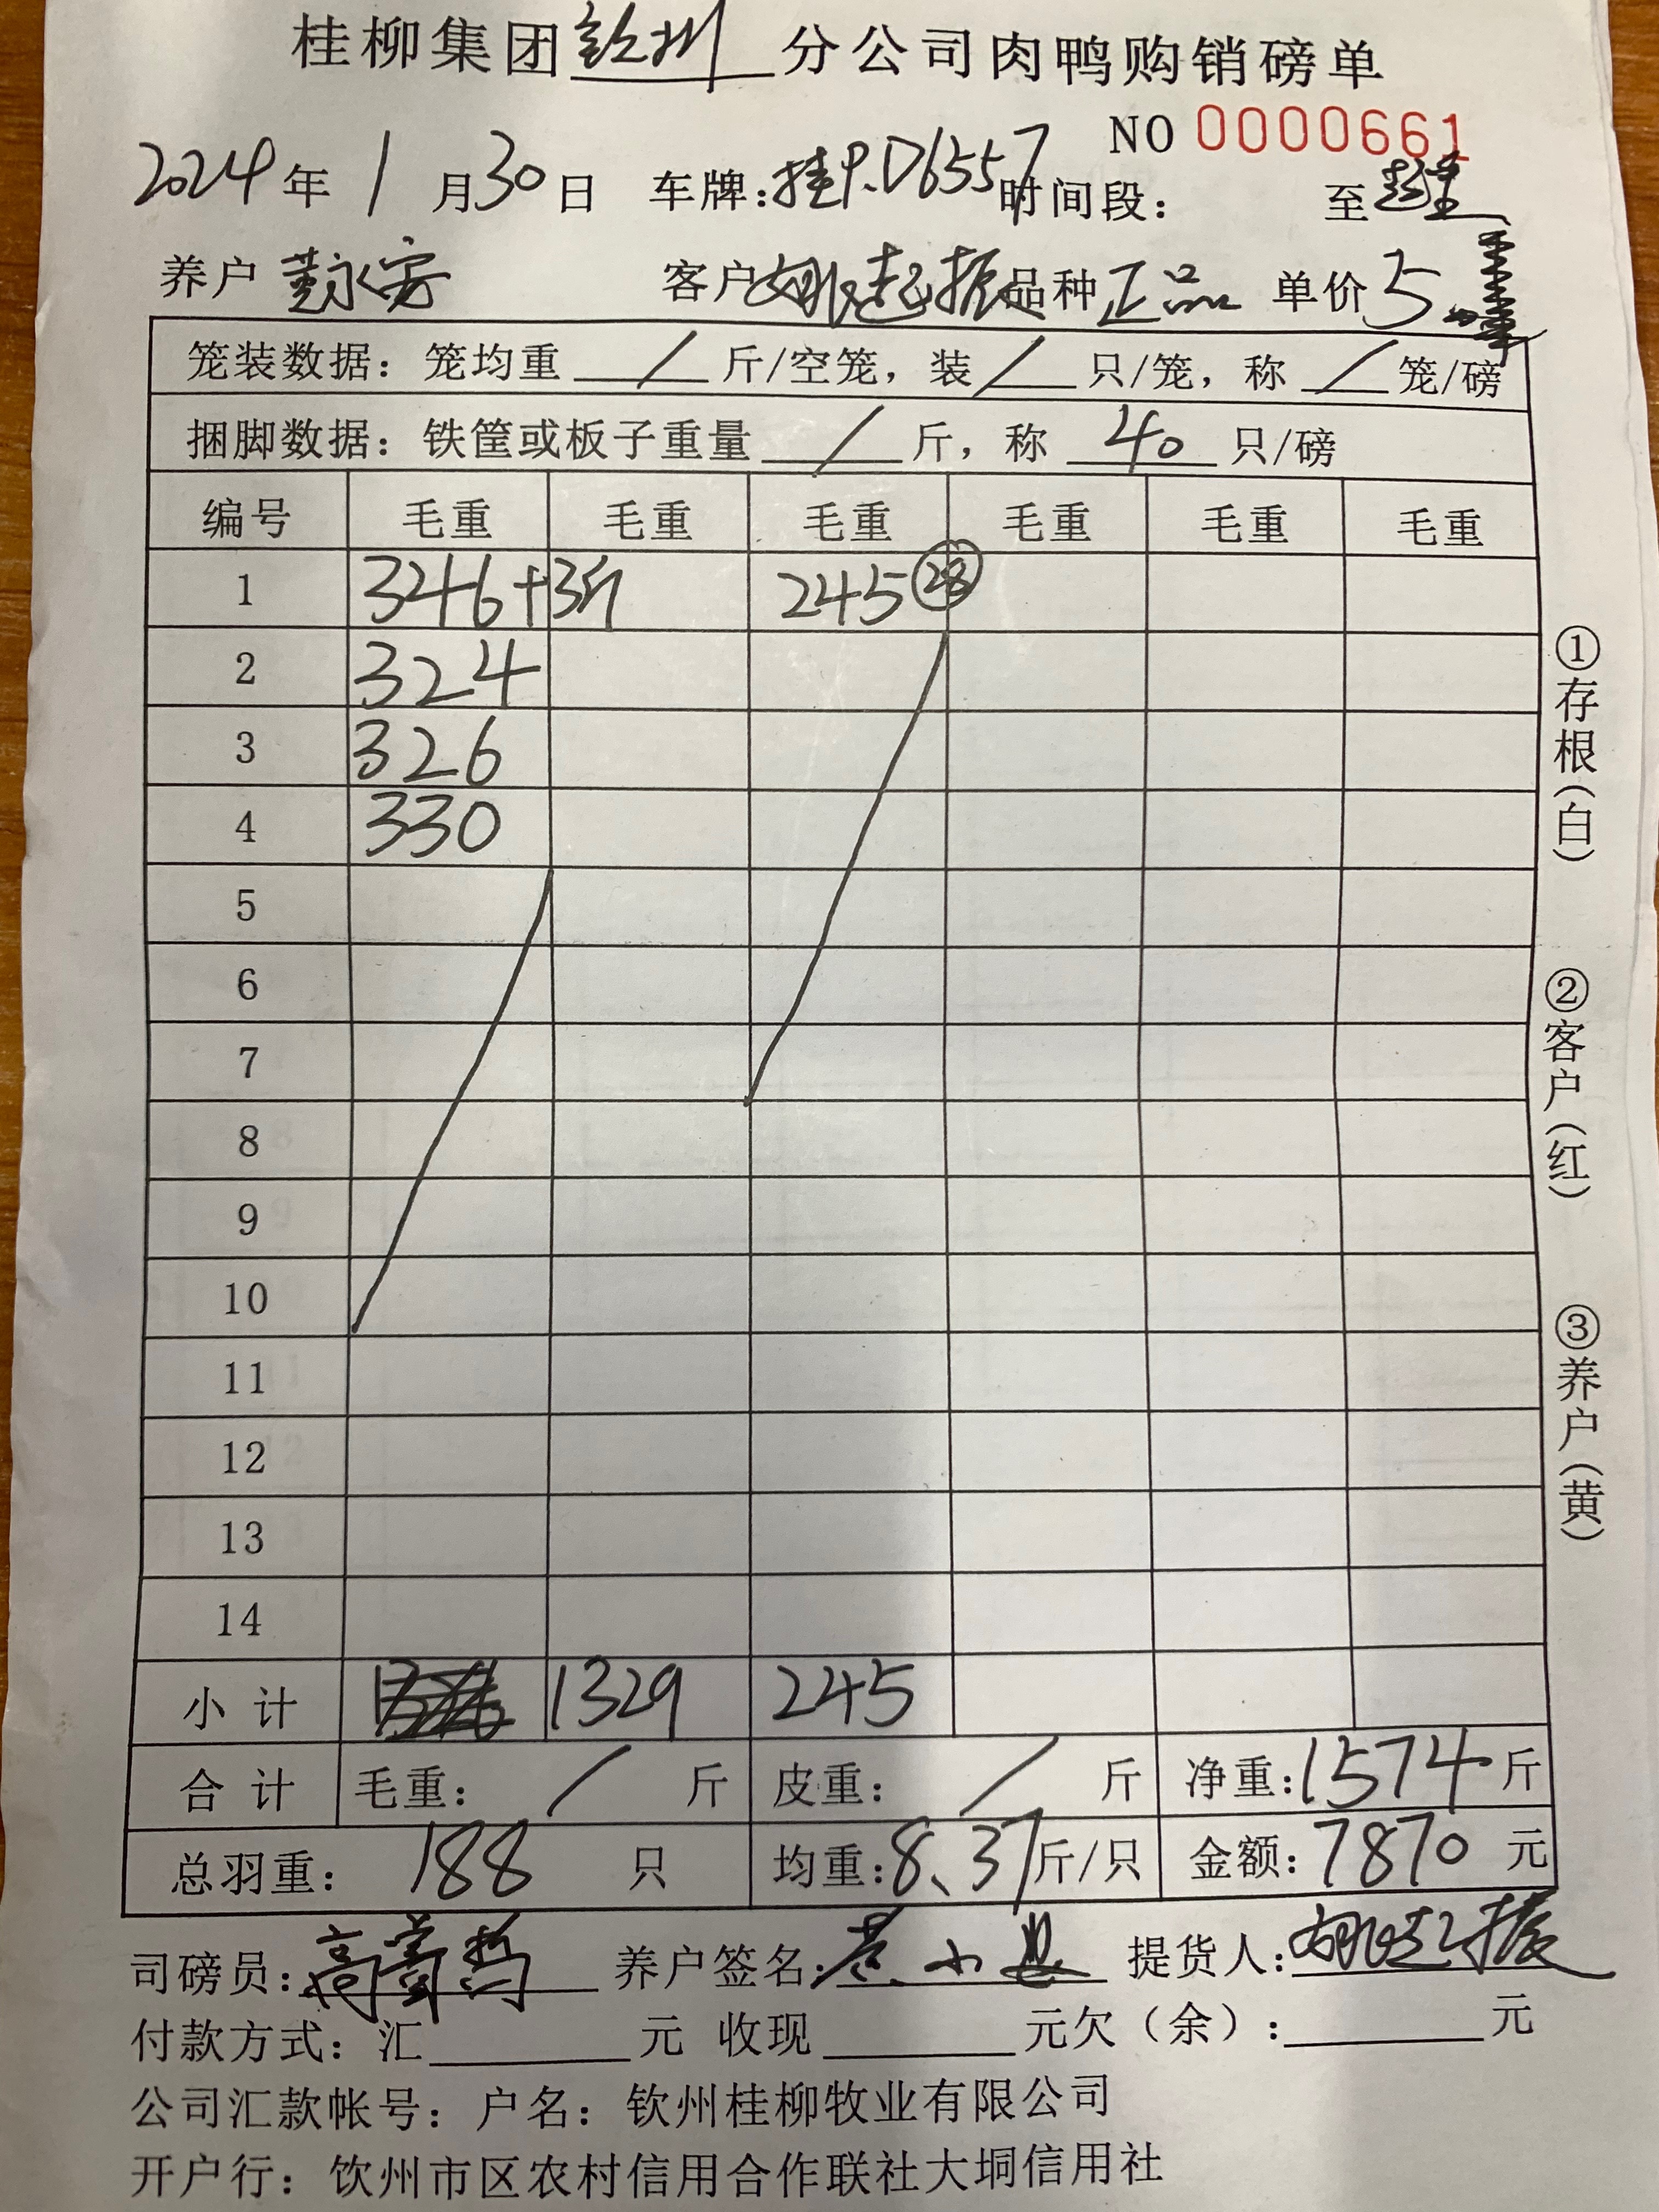 桂柳集团钦州分公司肉鸭购销磅单
NO 0000661
2024年1月30日 车牌:桂P.D6557 时间段: 至
养户 客户胡起振 品种 正品 单价 5
笼装数据: 笼均重 / 斤/空笼, 装 / 只/笼, 称 / 笼/磅
捆脚数据: 铁筐或板子重量 / 斤, 称 40 只/磅
编号 毛重 毛重 毛重 毛重 毛重 毛重
1 346+3斤 245 28
2 324
3 326
4 330
5
6
7
8
9
10
11
12
13
14
小计 1329 245
合计 毛重: / 斤 皮重: / 斤 净重:1574斤
总羽重: 188 只 均重:8、37斤/只 金额:7870元
司磅员: 养户签名: 提货人:胡起振
付款方式: 汇 元 收现 元欠(余): 元
公司汇款帐号: 户名: 钦州桂柳牧业有限公司
开户行: 钦州市区农村信用合作联社大垌信用社
①存根(白)
②客户(红)
③养户(黄)